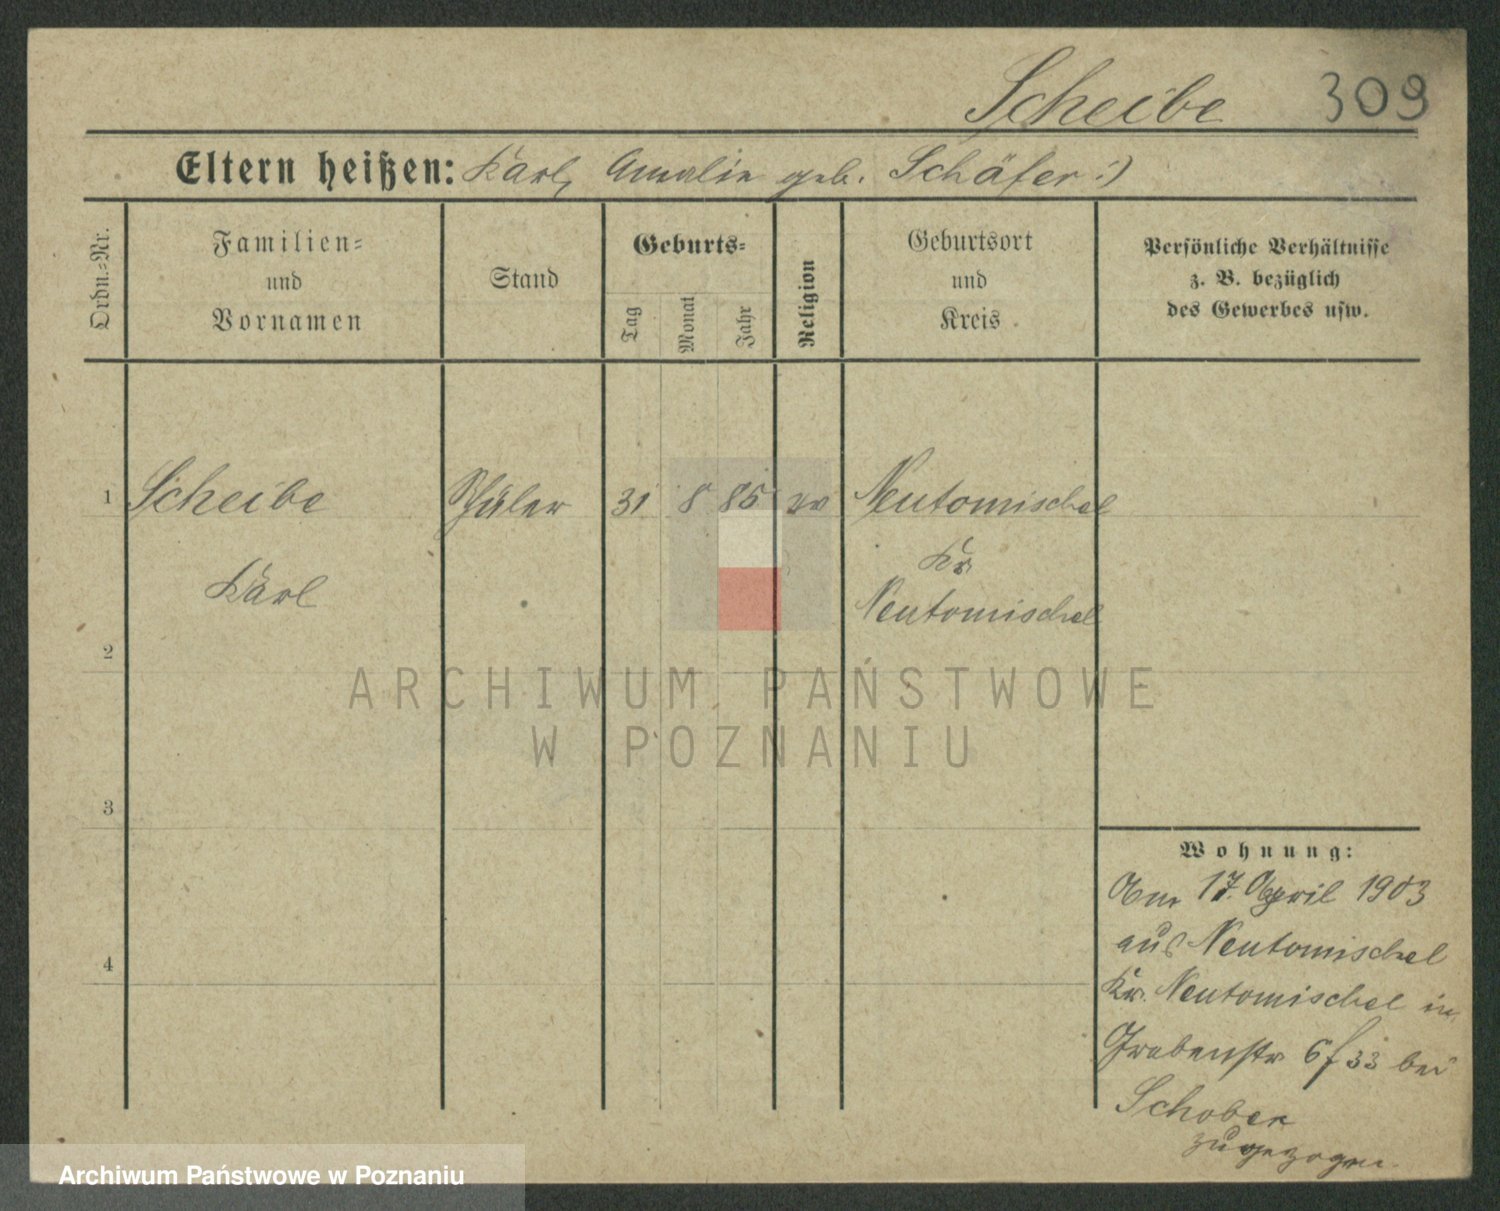 Scheibe 309
Eltern heißen: Karl, Amalie geb. Schäfer :)
Ordn.-Nr.
Familien-
und
Vornamen
Stand
Geburts-
Tag
Monat
Jahr
Religion
Geburtsort
und
Kreis
Persönliche Verhältnisse
z. B. bezüglich
des Gewerbes usw.
1 Scheibe Schüler 31 8 85 ev Neutomischel
Kr
Karl Neutomischel
2
ARCHIWUM PAŃSTWOWE
W POZNANIU
3
Wohnung:
Am 17. April 1903
aus Neutomischel
4
Kr. Neutomischel in
Grabenstr 6 f 33 bei
Schober
zugezogen.
Archiwum Państwowe w Poznaniu